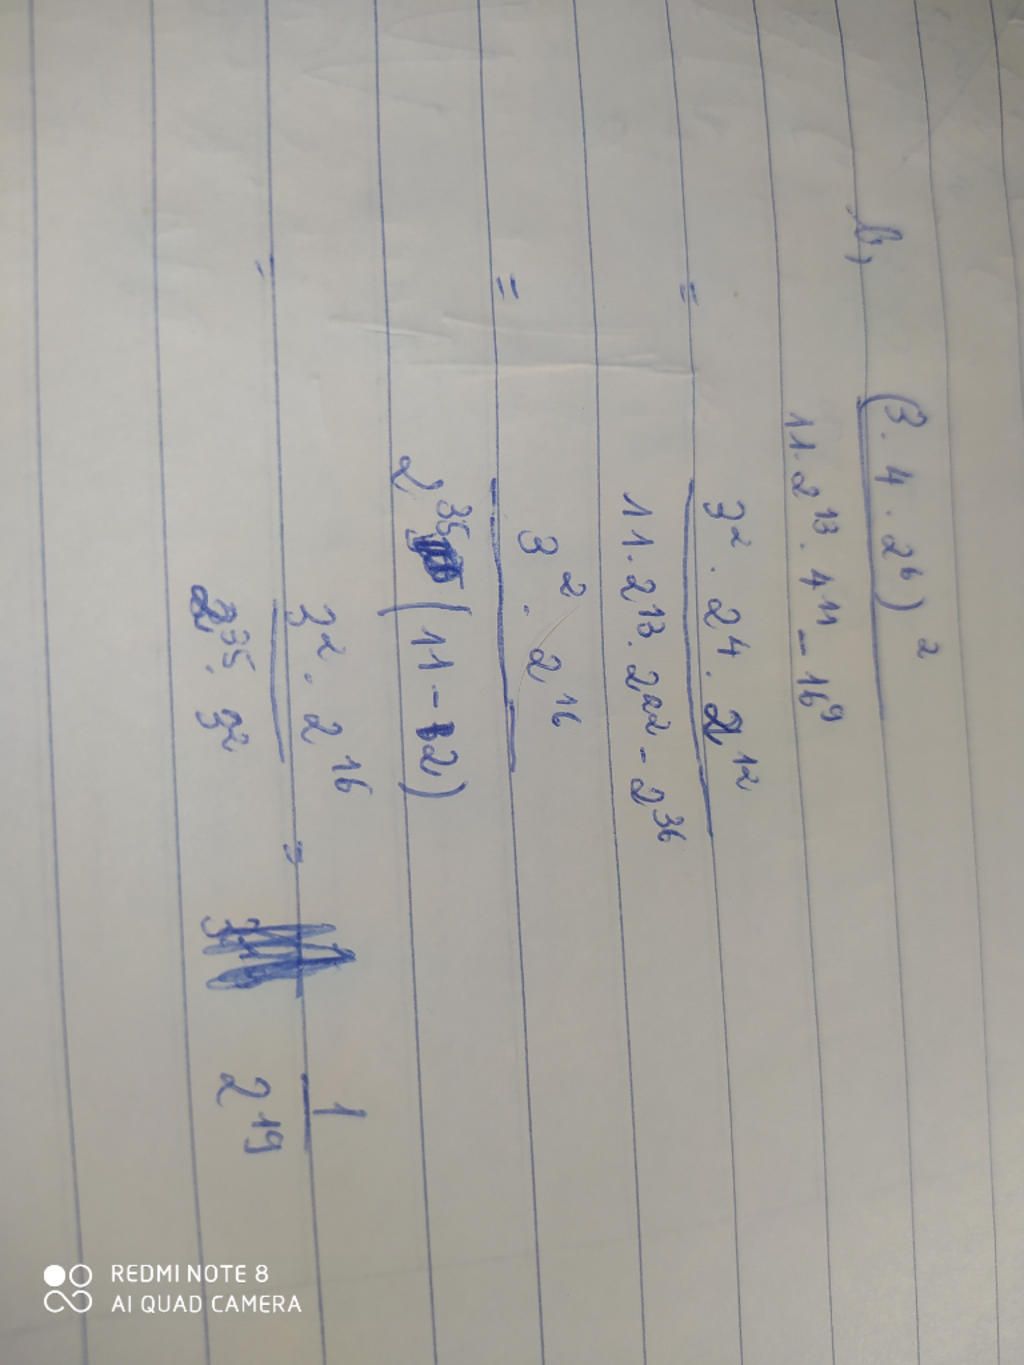 b, (3.4.2⁶)²
11.2¹³.4¹¹ - 16⁹
= 3².2⁴.2¹²
11.2¹³.2²² - 2³⁶
= 3².2¹⁶
2³⁵(11-2)
= 3².2¹⁶ = 1
2³⁵.3² 2¹⁹
REDMI NOTE 8
AI QUAD CAMERA